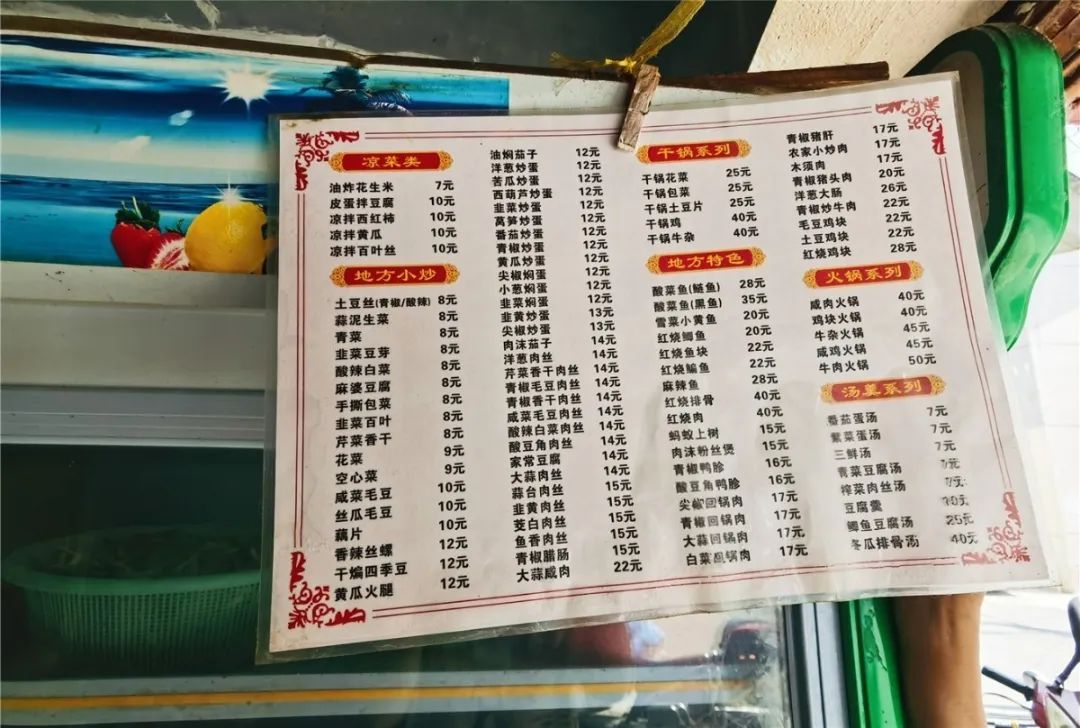 凉菜类
油炸花生米 7元
皮蛋拌豆腐 10元
凉拌西红柿 10元
凉拌黄瓜 10元
凉拌百叶丝 10元
地方小炒
土豆丝(青椒/酸辣) 8元
蒜泥生菜 8元
青菜 8元
韭菜豆芽 8元
酸辣白菜 8元
麻婆豆腐 8元
手撕包菜 8元
韭菜百叶 8元
芹菜香干 8元
花菜 9元
空心菜 9元
咸菜毛豆 10元
丝瓜毛豆 10元
藕片 10元
香辣丝螺 12元
干煸四季豆 12元
黄瓜火腿 12元
油焖茄子 12元
洋葱炒蛋 12元
苦瓜炒蛋 12元
西葫芦炒蛋 12元
韭菜炒蛋 12元
莴笋炒蛋 12元
番茄炒蛋 12元
青椒炒蛋 12元
黄瓜炒蛋 12元
尖椒焖蛋 12元
小葱焖蛋 12元
韭菜焖蛋 12元
韭黄炒蛋 13元
尖椒炒蛋 13元
肉沫茄子 14元
洋葱肉丝 14元
芹菜香干肉丝 14元
青椒毛豆肉丝 14元
青椒香干肉丝 14元
咸菜毛豆肉丝 14元
酸辣白菜肉丝 14元
酸豆角肉丝 14元
家常豆腐 14元
大蒜肉丝 14元
蒜台肉丝 15元
韭黄肉丝 15元
茭白肉丝 15元
鱼香肉丝 15元
青椒腊肠 15元
大蒜咸肉 22元
干锅系列
干锅花菜 25元
干锅包菜 25元
干锅土豆片 25元
干锅鸡 40元
干锅牛杂 40元
地方特色
酸菜鱼(鲢鱼) 28元
酸菜鱼(黑鱼) 35元
雪菜小黄鱼 20元
红烧鲫鱼 20元
红烧鱼块 22元
红烧鳊鱼 22元
麻辣鱼 28元
红烧排骨 40元
红烧肉 40元
蚂蚁上树 15元
肉沫粉丝煲 15元
青椒鸭胗 16元
酸豆角鸭胗 16元
尖椒回锅肉 17元
青椒回锅肉 17元
大蒜回锅肉 17元
白菜回锅肉 17元
青椒猪肝 17元
农家小炒肉 17元
木须肉 17元
青椒猪头肉 20元
洋葱大肠 26元
青椒炒牛肉 22元
毛豆鸡块 22元
土豆鸡块 22元
红烧鸡块 28元
火锅系列
咸肉火锅 40元
鸡块火锅 40元
牛杂火锅 45元
咸鸡火锅 45元
牛肉火锅 50元
汤羹系列
番茄蛋汤 7元
紫菜蛋汤 7元
三鲜汤 7元
青菜豆腐汤
榨菜肉丝汤
豆腐羹 10元
鲫鱼豆腐汤 25元
冬瓜排骨汤 40元